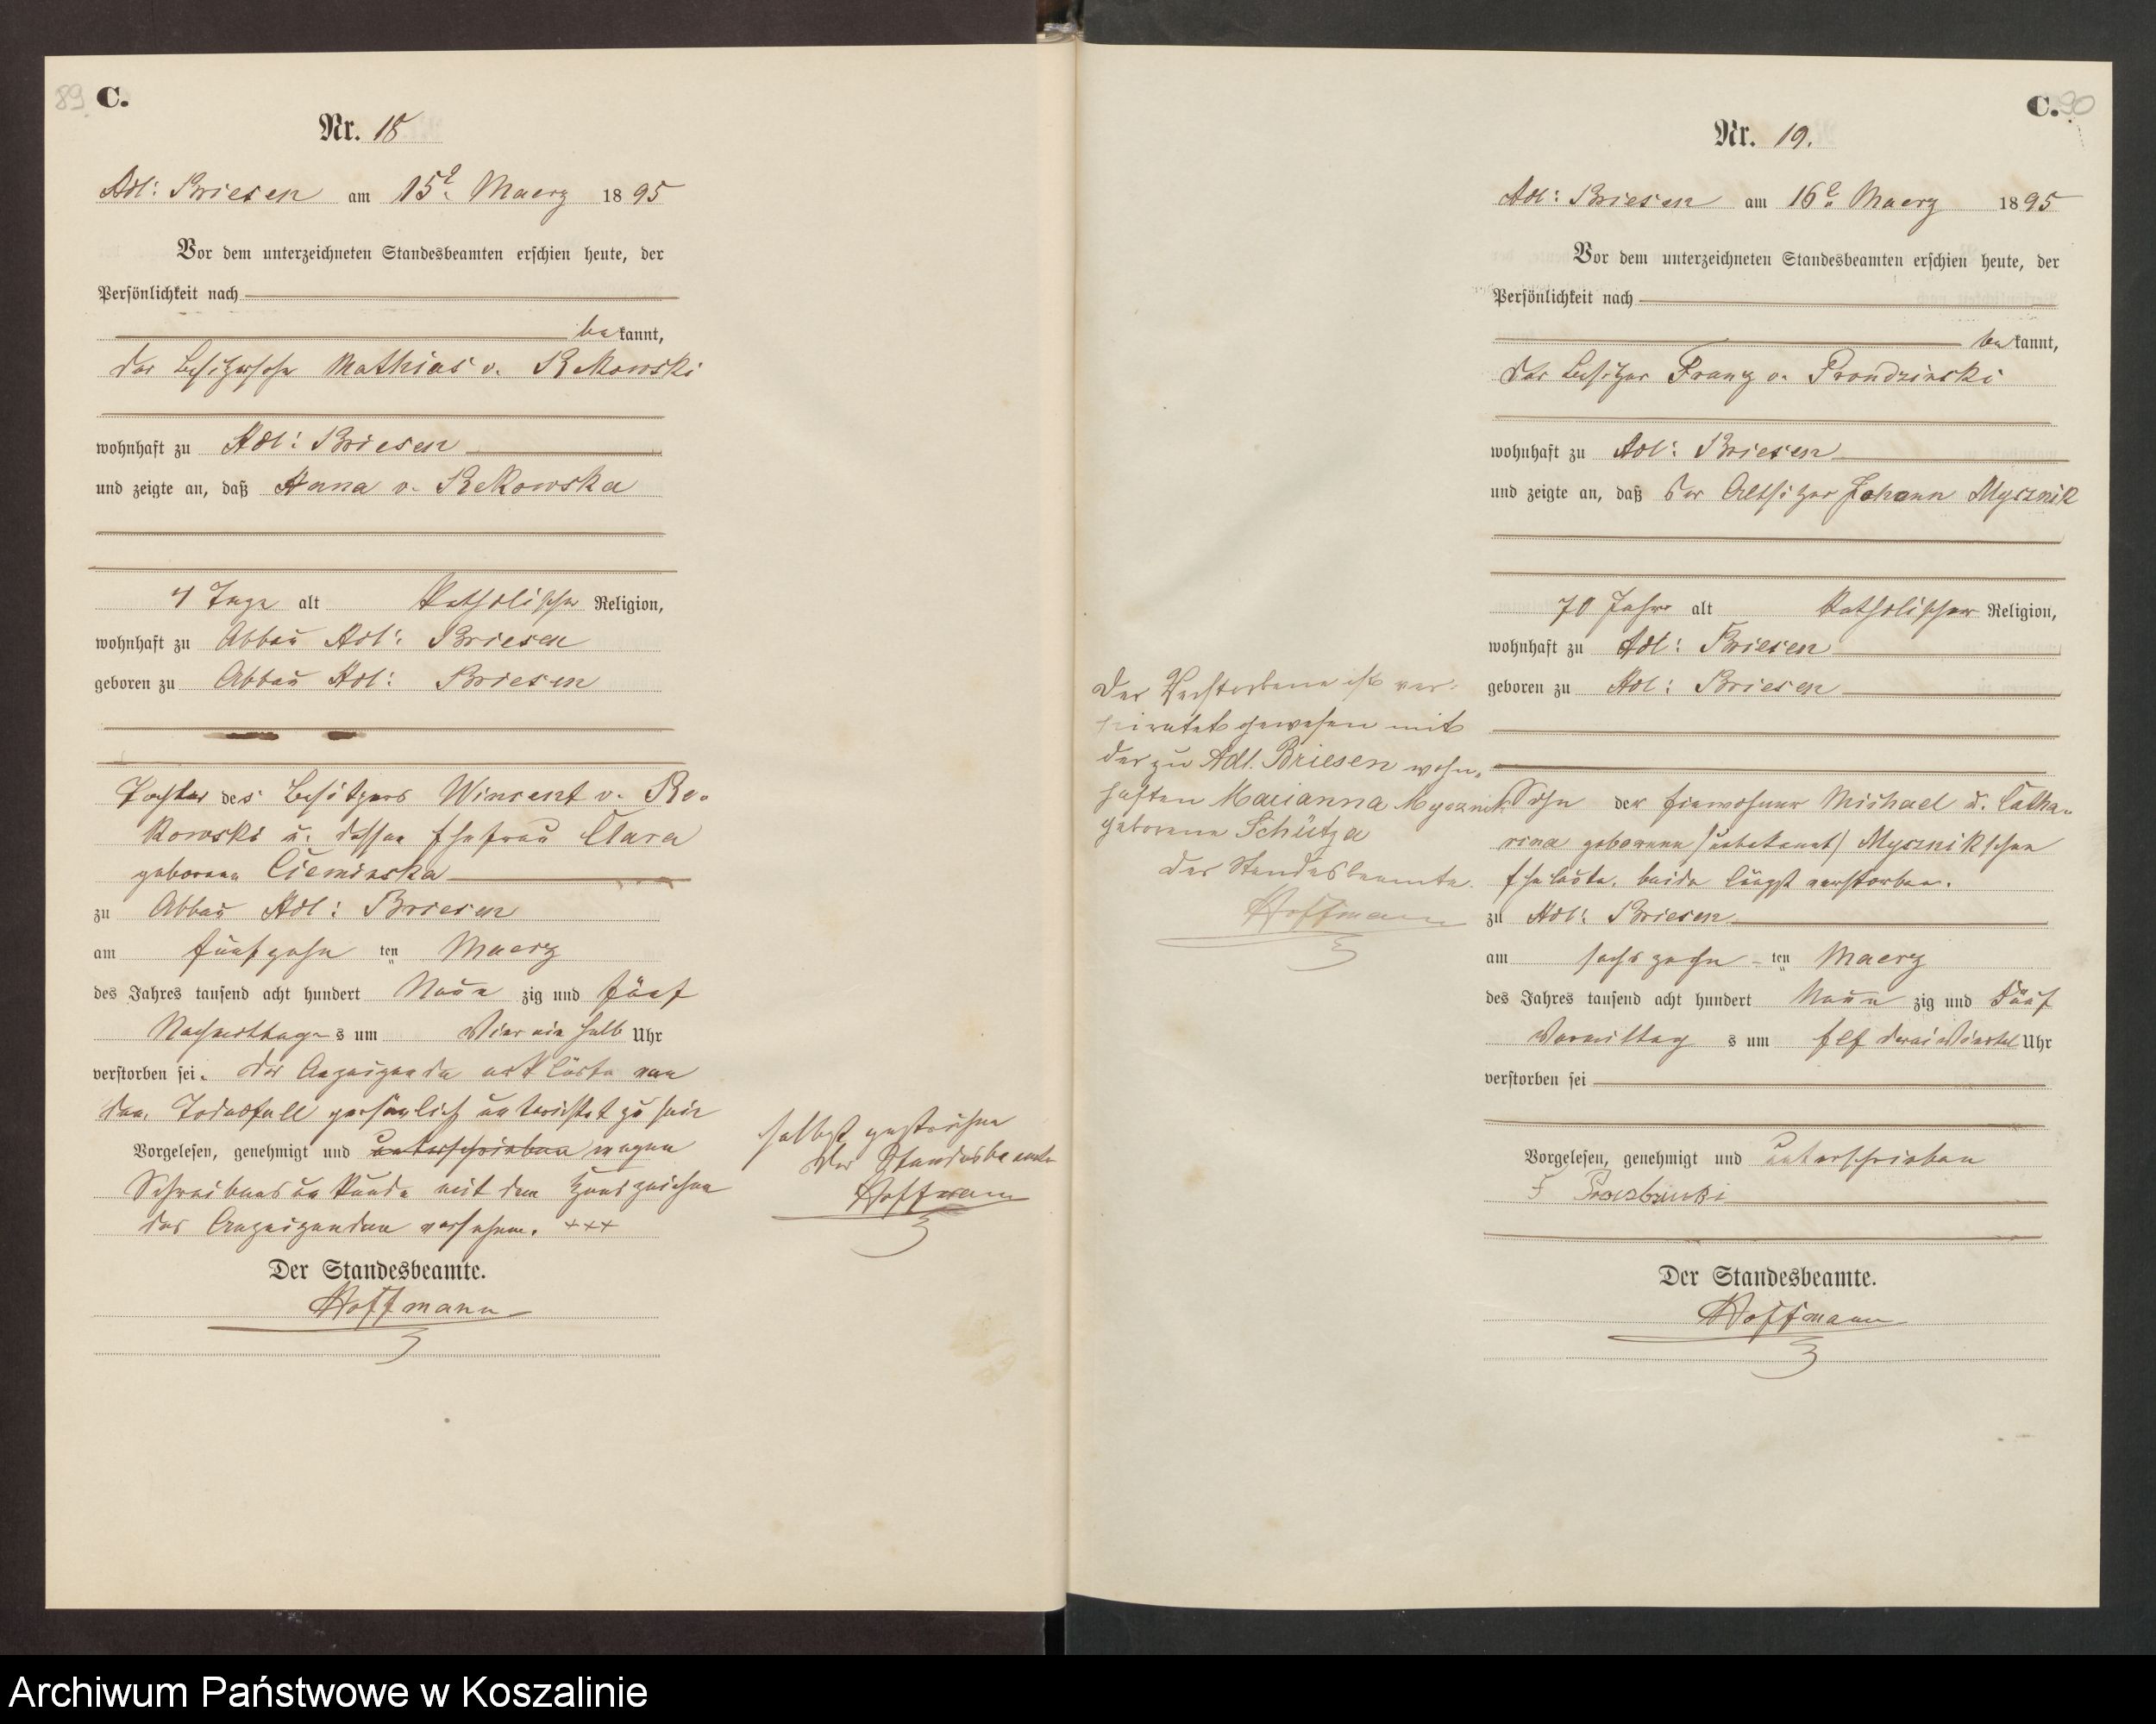 89 C.
Nr. 18
Adl: Briesen am 15t. Maerz 1895
Vor dem unterzeichneten Standesbeamten erschien heute, der
Persönlichkeit nach
bekannt,
der Besitzersohn Mathias v. Rekowski
wohnhaft zu Adl: Briesen
und zeigte an, daß Anna v. Rekowska
4 Tage alt katholischer Religion,
wohnhaft zu Abbau Adl: Briesen
geboren zu Abbau Adl: Briesen
Tochter des Besitzers Wincent v. Re-
kowski u. dessen Ehefrau Clara
geborene Cieminska
zu Abbau Adl: Briesen
am fünfzehnten Maerz
des Jahres tausend acht hundert Neunzig und fünf
Nachmittags um Vier ein halb Uhr
verstorben sei. Der Anzeigende erklärte von
dem Todesfall persönlich unterrichtet zu sein
Vorgelesen, genehmigt und unterschrieben wegen
Schreibensunkunde mit dem Handzeichen
des Anzeigenden versehen. +++
Der Standesbeamte.
Hoffmann
selbst gestrichen
Der Standesbeamte
Hoffmann
C. 90
Nr. 19.
Adl: Briesen am 16t. Maerz 1895
Vor dem unterzeichneten Standesbeamten erschien heute, der
Persönlichkeit nach
bekannt,
der Besitzer Franz v. Prondzinski
wohnhaft zu Adl: Briesen
und zeigte an, daß der Altsitzer Johann Mysznik
70 Jahre alt katholischer Religion,
wohnhaft zu Adl: Briesen
geboren zu Adl: Briesen
Sohn der Einwohner Michael u. Catha-
rina geborene (unbekannt) Mysznikschen
Eheleute, beide längst verstorben.
zu Adl: Briesen
am sechszehnten Maerz
des Jahres tausend acht hundert Neunzig und Fünf
Vormittags um Elf drei Viertel Uhr
verstorben sei
Vorgelesen, genehmigt und unterschrieben
F
Der Standesbeamte.
Hoffmann
Der Verstorbene ist ver-
heiratet gewesen mit
der zu Adl. Briesen wohn-
haften Marianna Mysznik
geborene Schütza
Der Standesbeamte.
Hoffmann
Archiwum Państwowe w Koszalinie